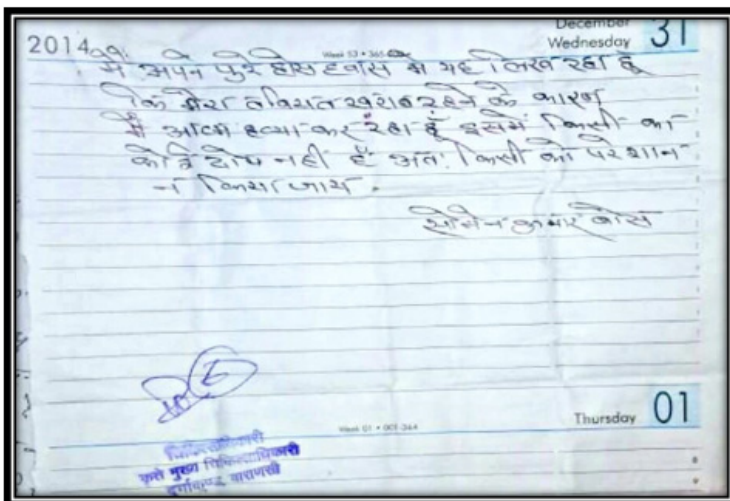 2014
Week 53 • 365
December
Wednesday 31
मैं अपने पुरे होस हवास में यह लिख रहा हूँ
कि मेरा तबियत खराब रहने के कारण
मैं आत्म हत्या कर रहा हूँ इसमें किसी का
कोई दोष नहीं है अतः किसी को परेशान
न किया जाय.
सोमेन कुमार बोस
Week 01 • 001-364
Thursday 01
चिकित्साधिकारी
कृते मुख्य चिकित्साधिकारी
दुर्गाकुण्ड, वाराणसी